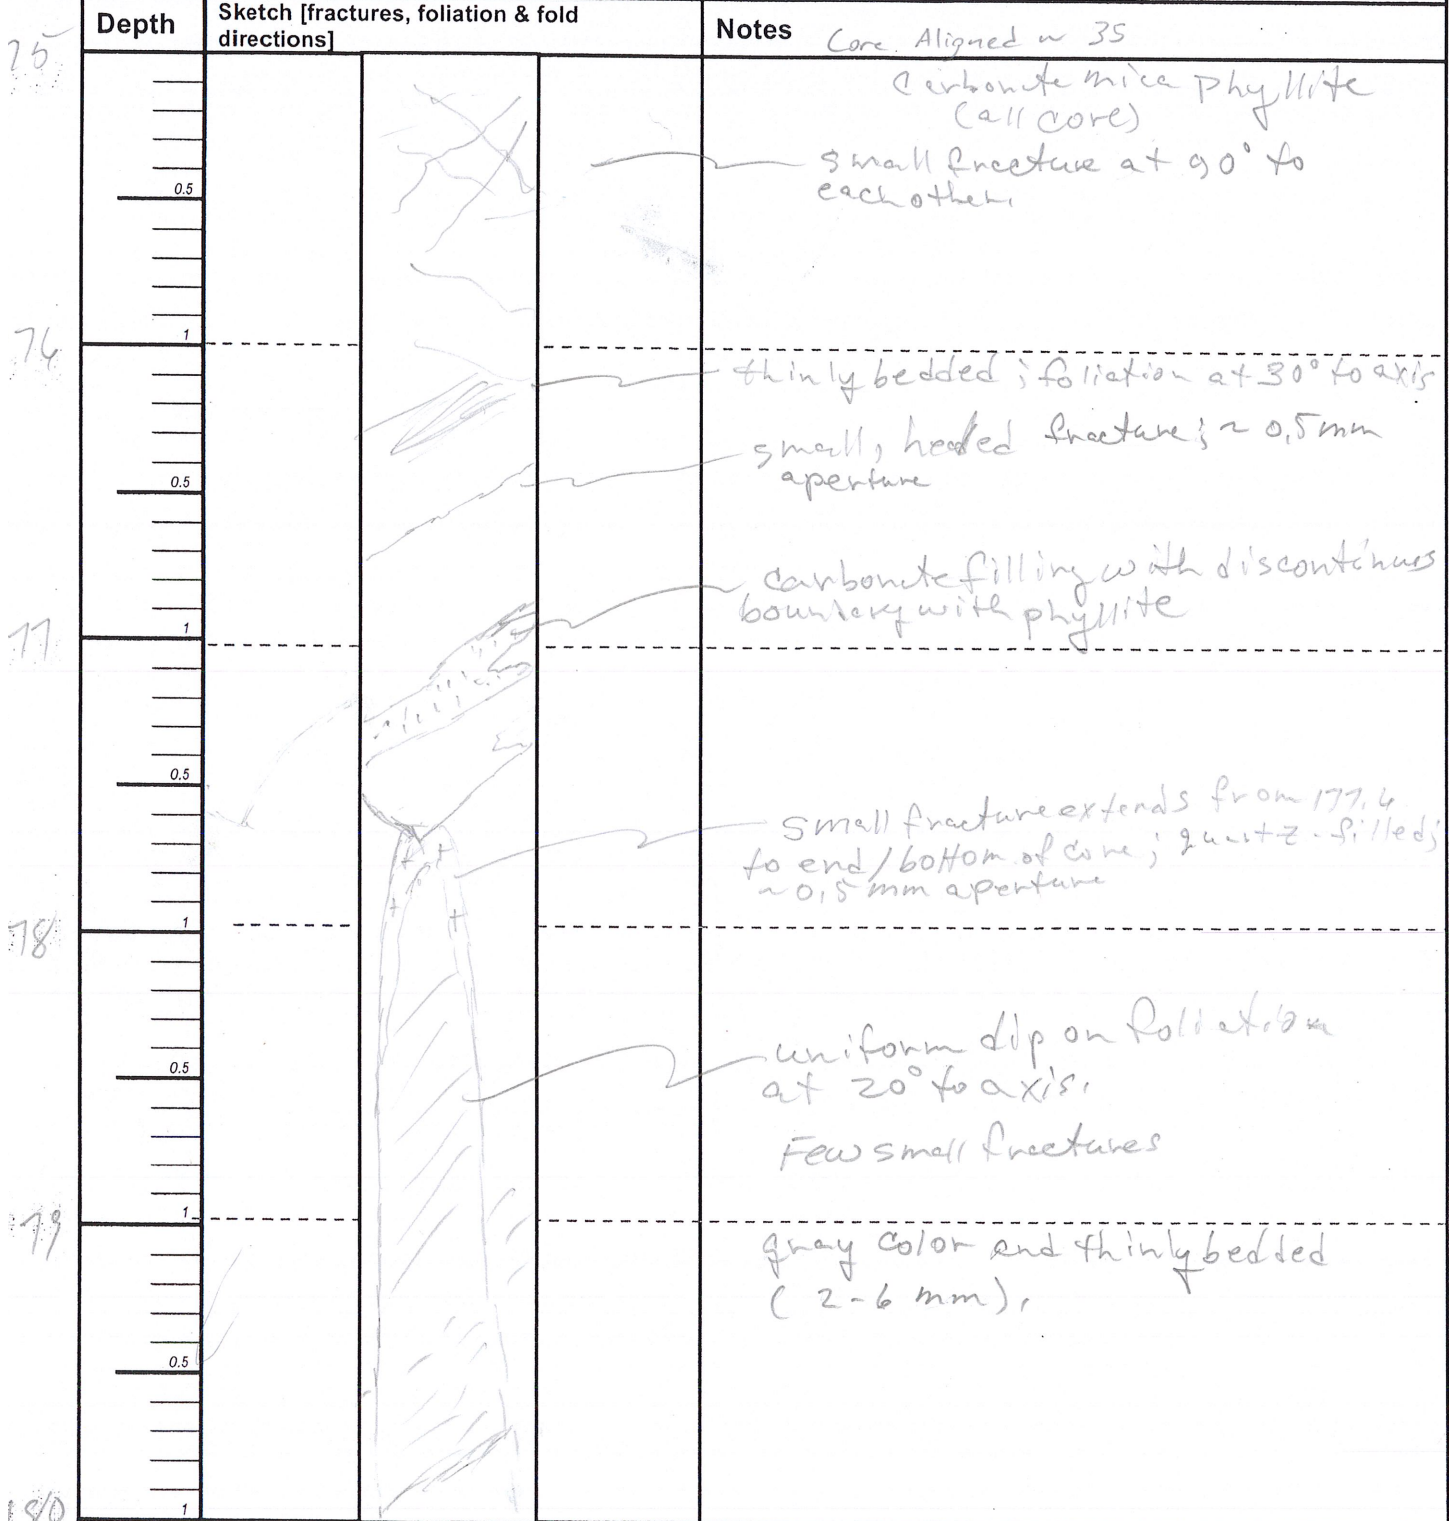 Depth
Sketch [fractures, foliation & fold
directions]
Notes
Core Aligned w 35
75
Carbonate mica phyllite
(all core)
small fracture at 90° to
each other.
0.5
1
76
thinly bedded; foliation at 30° to axis
small, healed fracture; ~ 0.5 mm
aperture
0.5
carbonate filling with discontinuos
boundery with phyllite
1
77
0.5
small fracture extends from 177.6
to end/bottom of core; quartz-filled;
~0.5 mm aperture
1
78
uniform dip on foliation
at 20° to axis.
0.5
Few small fractures
1
79
gray color and thinly bedded
(2-6 mm).
0.5
1
180